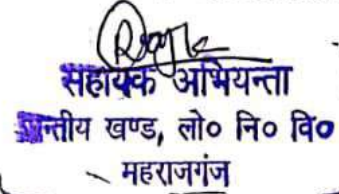 सहायक अभियन्ता
खण्ड, लो० नि० वि०
महराजगंज